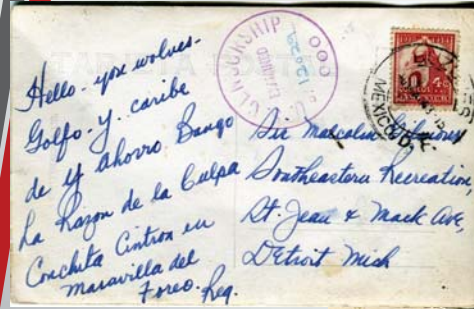 Hello - you wolves -
Golfo - y. caribe
de y Ahorro. Bango
La Razon de la Culpa
Conchita Cintron en
maravilla del
Toreo. Reg.
CENSORSHIP
EXAMINED
000
4¢
MEXICO D.F.
Sir Malcolm
Southeastern Recreation,
St. Jean & Mack Ave,
Detroit Mich